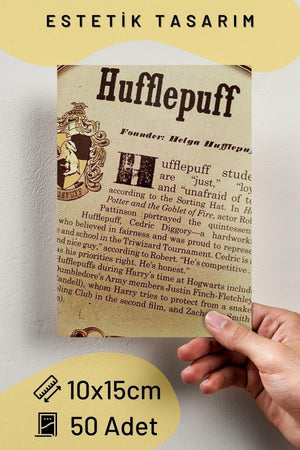 ESTETİK TASARIM
Hufflepuff
Founder: Helga Hufflepu
Hufflepuff stude
are "just," "loy
and "unafraid of to
according to the Sorting Hat. In H
Potter and the Goblet of Fire, actor Rob
Pattinson portrayed the quintessen
Hufflepuff, Cedric Diggory—a hardwork
who believed in fairness and was proud to repres
e and school in the Triwizard Tournament. Cedric is
nd nice guy," according to Robert. "He's competitive
as his priorities right. He's honest."
Hufflepuffs during Harry's time at Hogwarts include
Dumbledore's Army members Justin Finch-Fletchley
andell), whom Harry tries to protect from a snake
ling Club in the second film, and Zach Smith
10x15cm
50 Adet